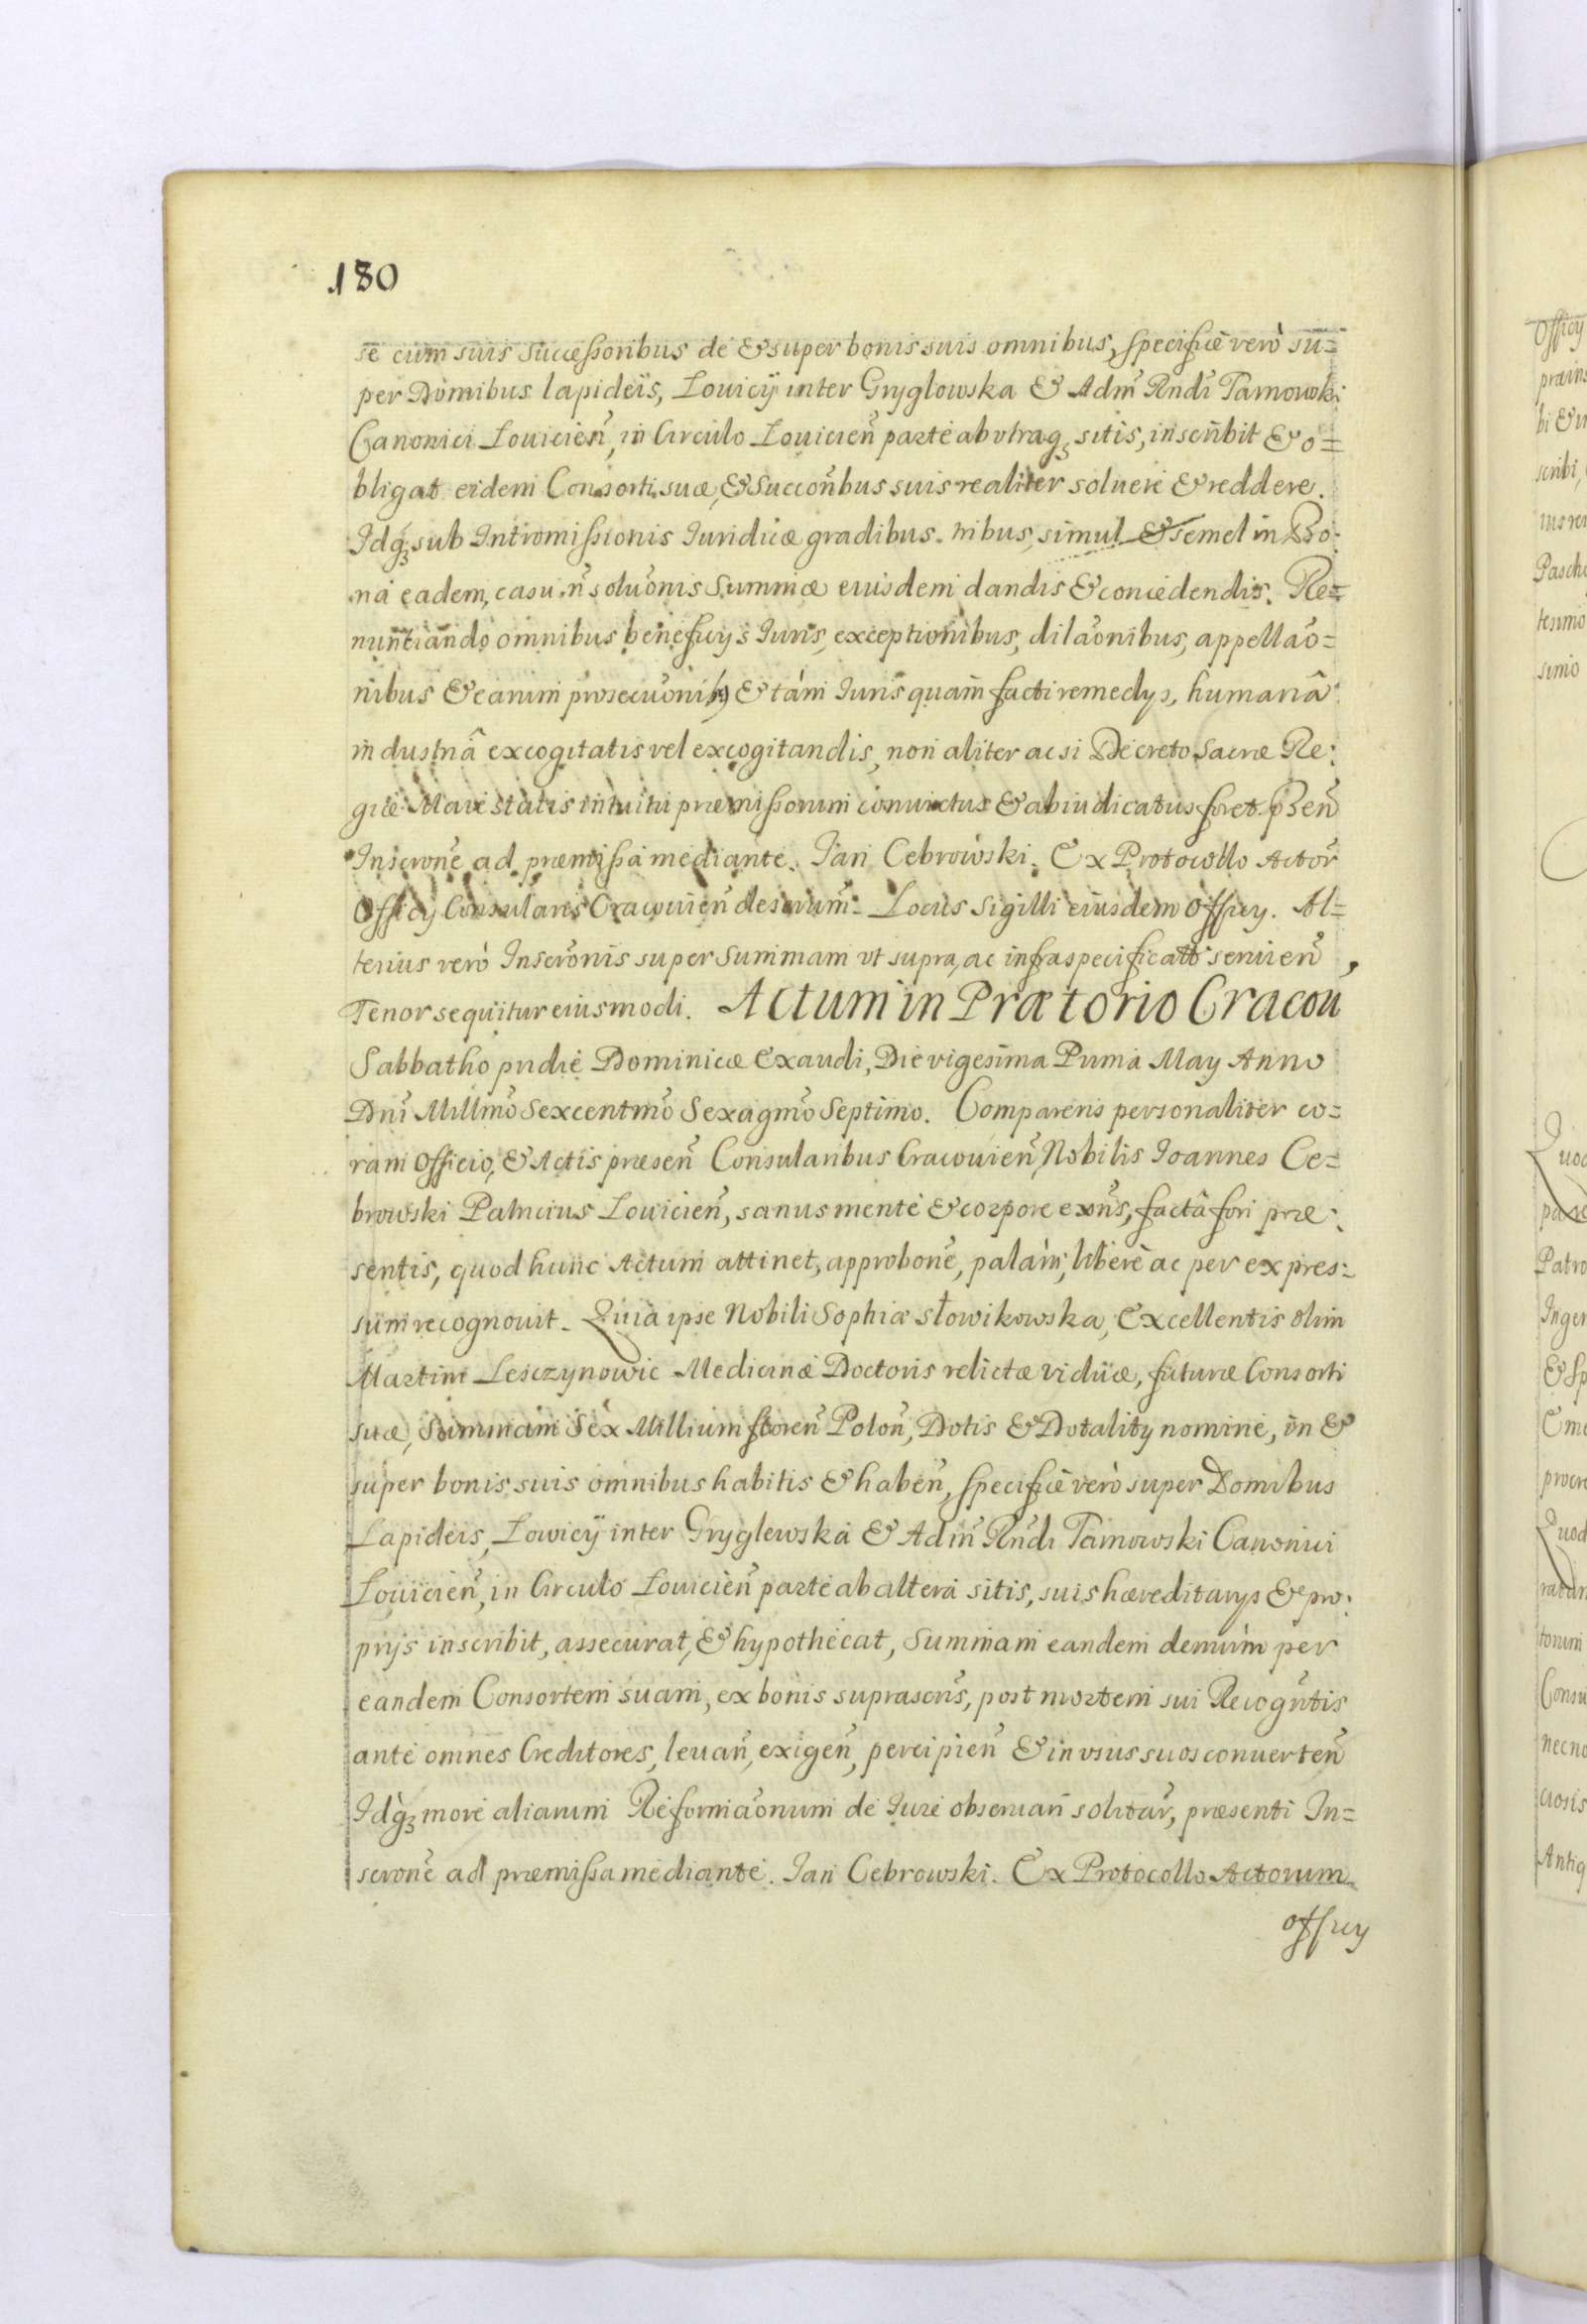 180
se cum suis Successoribus de & super bonis suis omnibus, specificè verò su=
per Domibus lapideis, Louicÿ inter Gryglowska & Adm̃ Rñdi Tarnowski
Canonici Louicień, in Circulo Louicień parte ab vtraqꝫ sitis, inscribit & o=
bligat eidem Consorti suæ, & Succoñbus suis realiter soluere & reddere.
Idqꝫ sub Intromissionis Iuridicæ gradibus tribus, simul & semel in Bo:
na eadem, casu ñ soluõnis Summæ eiusdem dandis & concedendis. Re=
nuñtiando omnibus beneficijs Iuris, exceptionibus, dilaõnibus, appellaõ=
nibus & earum prosecuõnibꝰ & tàm Iuris quam facti remedys, humanâ
industriâ excogitatis vel excogitandis, non aliter ac si Decreto Sacræ Re:
giæ Maiestatis intuitu præmissorum conuictus & abiudicatus foret. p̃sen̄
Inscrone ad præmissa mediante. Jan Cebrowski. Ex Protocollo Actor̃
Officÿ Consularis Cracouień desum̃. Locus Sigilli eiusdem Officy. Al=
terius verò Inscrõnis super Summam vt supra, ac infraspecificatã seruień,
Tenor sequitur eiusmodi. Actum in Prætorio Cracoũ
Sabbatho pridie Dominicæ Exaudi, Die vigesima Prima May Anno
Dnĩ Millmõ Sexcentmõ Sexagmõ Septimo. Comparens personaliter co=
ram Officio, & Actis præsen̄ Consularibus Cracouień, Nobilis Ioannes Ce=
browski Patricius Louicień, sanus mente & corpore exñs, factâ fori præ:
sentis, quod hunc Actum attinet, approbone, palàm, liberè ac per expres:
sum recognouit. Quia ipse Nobili Sophiæ Słowikowska, Excellentis olim
Martini Lesczynowic Medicinæ Doctoris relictæ viduæ, futuræ Consorti
suæ, Summam Sex Millium floreń Poloń, Dotis & Dotality nomine, in &
super bonis suis omnibus habitis & habeń, specificè verò super Domibus
Lapideis, Lowicÿ inter Gryglewska & Adm̃ Rñdi Tarnowski Canonici
Louicień, in Circulo Louicień parte ab altera sitis, suis hæreditarys & pro:
prijs inscribit, assecurat, & hypothecat, Summam eandem demùm per
eandem Consortem suam, ex bonis suprascrĩs, post mortem sui Recogñtis
ante omnes Creditores, leuan̄, exigen̄, percipien̄ & in vsus suos conuerten̄
Idqꝫ more aliarum Reformaõnum de Iure obseruan̄ solitar̃, præsenti In=
scrone ad præmissa mediante. Jan Cebrowski. Ex Protocollo Actorum
officy